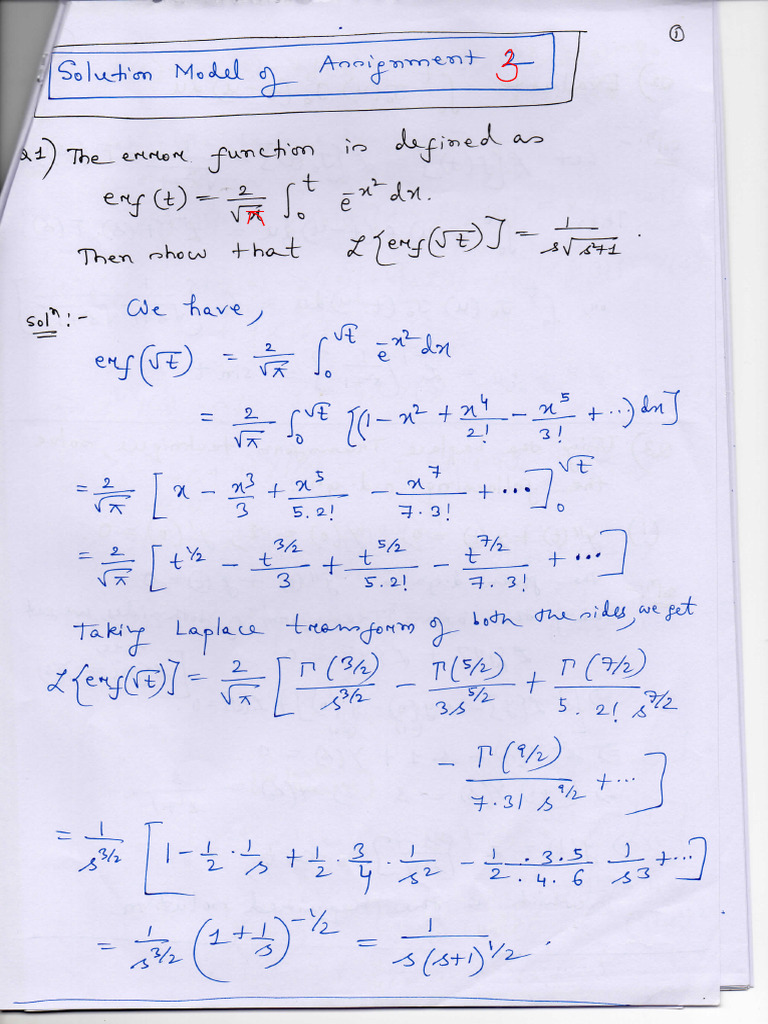 ①
Solution Model of Assignment 3
Q1) The error function is defined as
erf(t) = 2/√π ∫₀^t e^{-x²} dx.
Then show that L{erf(√t)} = 1/(s√(s²+1)).
Solⁿ:- We have,
erf(√t) = 2/√π ∫₀^{√t} e^{-x²} dx
= 2/√π ∫₀^{√t} [(1 - x² + x⁴/2! - x⁵/3! + ...) dx]
= 2/√π [x - x³/3 + x⁵/5.2! - x⁷/7.3! + ...]₀^{√t}
= 2/√π [t^{1/2} - t^{3/2}/3 + t^{5/2}/5.2! - t^{7/2}/7.3! + ...]
Taking Laplace transform of both the sides, we get
L{erf(√t)} = 2/√π [Γ(3/2)/s^{3/2} - Γ(5/2)/3s^{5/2} + Γ(7/2)/5.2! s^{7/2}
- Γ(9/2)/7.3! s^{9/2} + ...]
= 1/s^{3/2} [1 - 1/2 · 1/s + 1/2 · 3/4 · 1/s² - 1.3.5/2.4.6 1/s³ + ...]
= 1/s^{3/2} (1 + 1/s)^{-1/2} = 1/(s(s+1)^{1/2}).